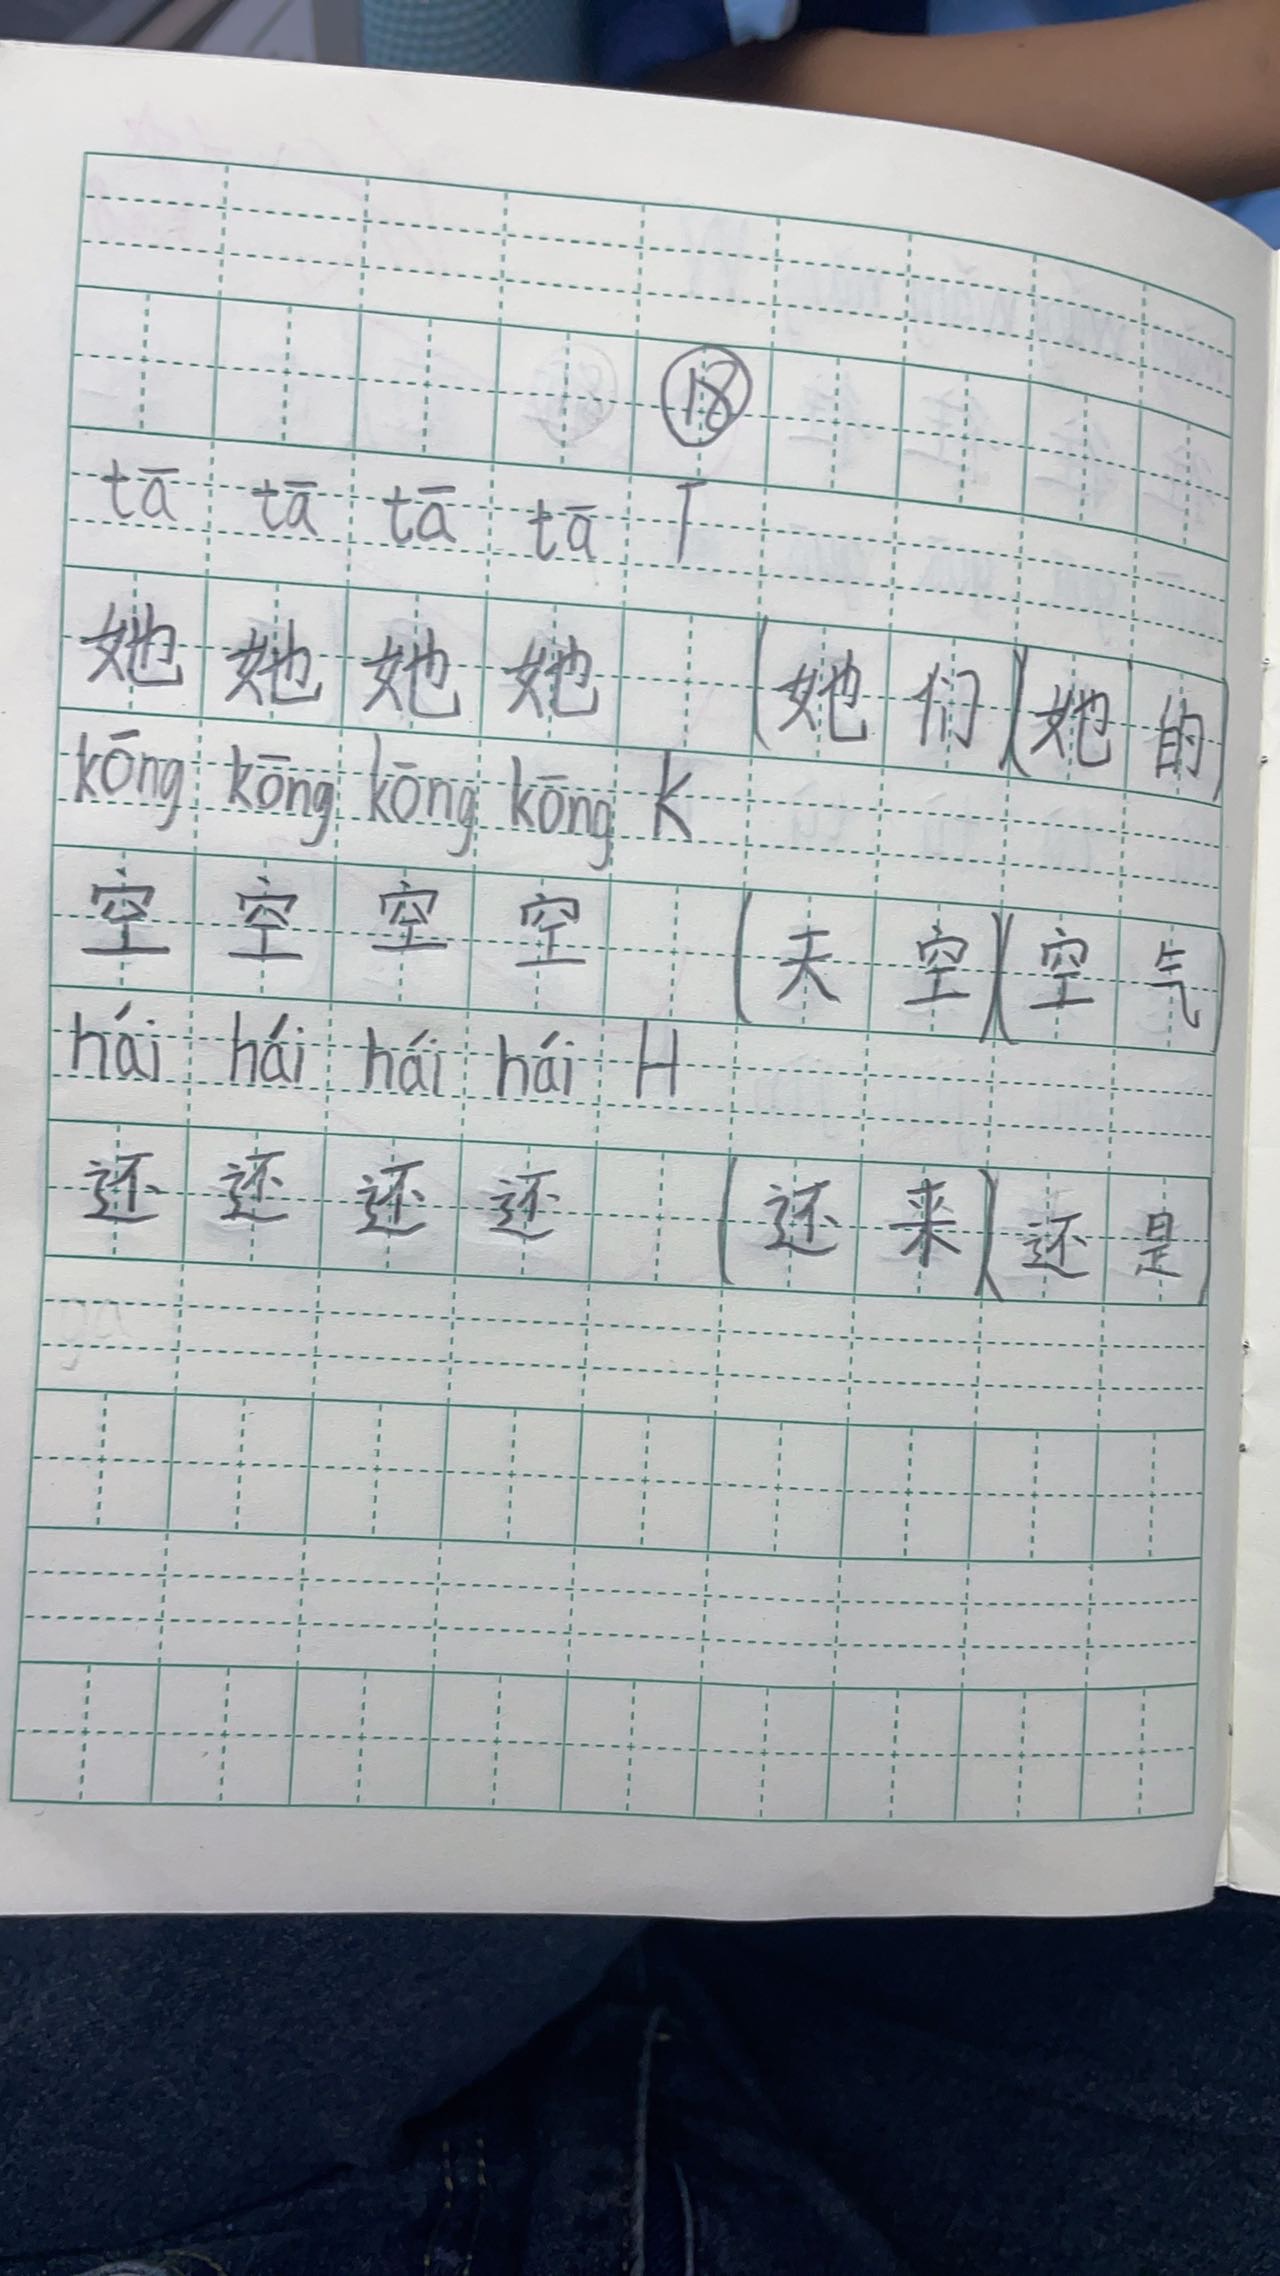 18
tā tā tā tā T
她 她 她 她 (她们)(她的)
kōng kōng kōng kōng K
空 空 空 空 (天空)(空气)
hái hái hái hái H
还 还 还 还 (还来)(还是)